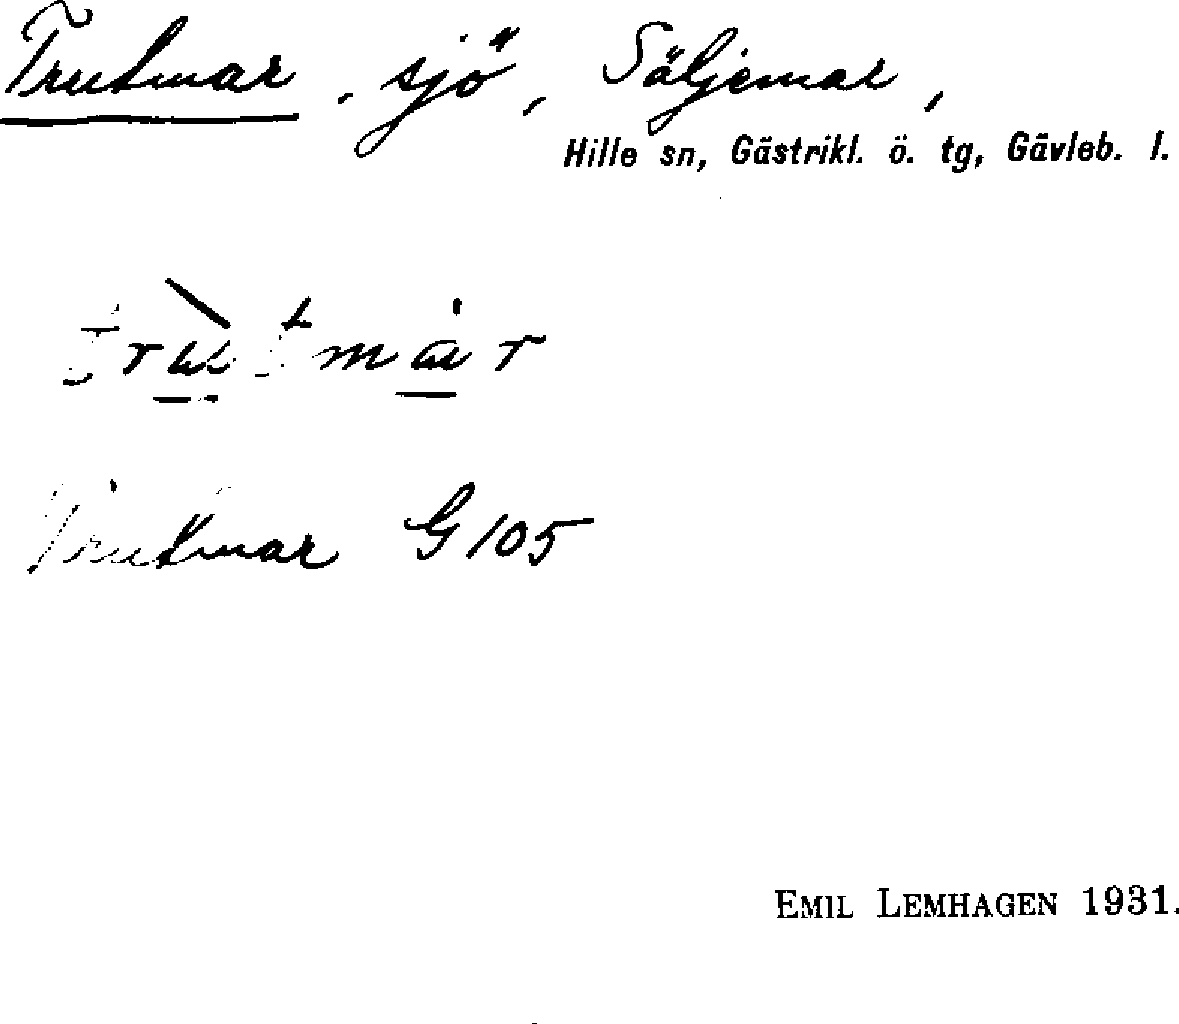 Trutmar, sjö, Säljemar,
Hille sn, Gästrikl. ö. tg, Gävleb. l.
Trutmar G 105
EMIL LEMHAGEN 1931.